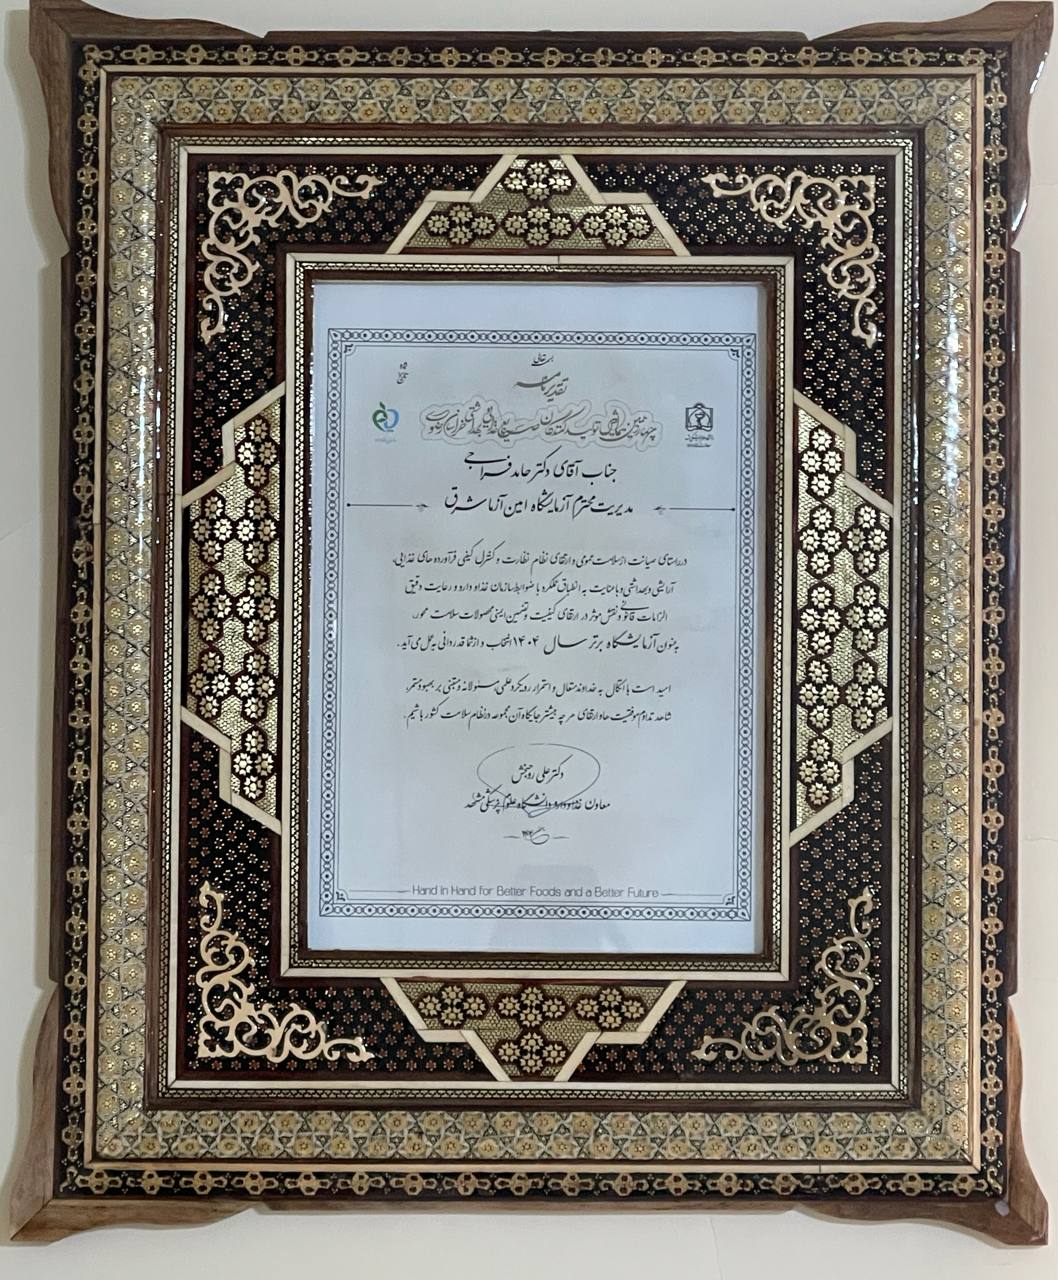 بسمه تعالی
تقدیرنامه
جناب آقای دکتر حامد فراجی
مدیریت محترم آزمایشگاه امین آزما شرق
در راستای صیانت از سلامت عمومی و ارتقای نظام نظارت و کنترل کیفی فرآورده های غذایی،
آرایشی و بهداشتی و با عنایت به انطباق عملکرد با ضوابط سازمان غذا و دارو و رعایت دقیق
الزامات قانونی و نقش موثر در ارتقای کیفیت و تضمین ایمنی محصولات سلامت محور،
به عنوان آزمایشگاه برتر سال ۱۴۰۴ انتخاب و از شما قدردانی به عمل می آید.
امید است با اتکال به خداوند متعال و استمرار رویکرد علمی، مسئولانه و مبتنی بر بهبود مستمر،
شاهد تداوم موفقیت ها و ارتقای هر چه بیشتر جایگاه آن مجموعه در نظام سلامت کشور باشیم.
دکتر علی روحبخش
معاون غذا و دارو دانشگاه علوم پزشکی مشهد
Hand in Hand for Better Foods and a Better Future